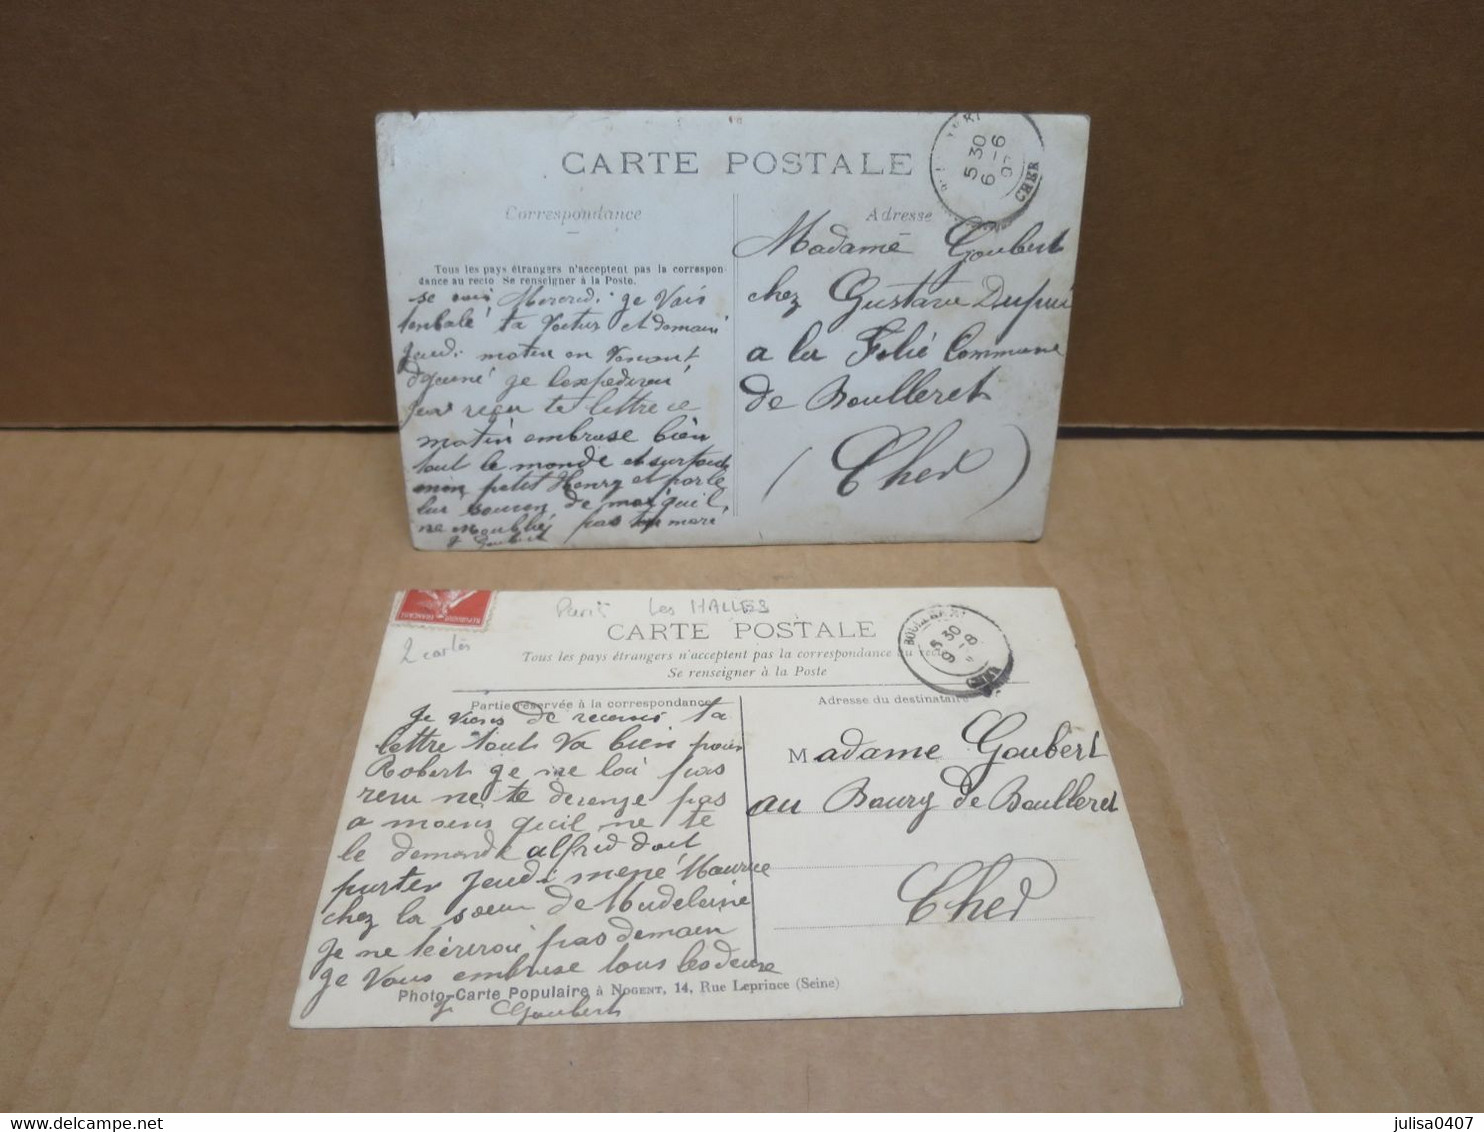 CARTE POSTALE
5 30
6 - 6
CHER
Correspondance
Adresse
Tous les pays étrangers n'acceptent pas la correspon-
dance au recto Se renseigner à la Poste.
se soir Mercredi je Vais
ta Voitur et demain
Jeudi matin en Venant
je lexpedirai
jai reçu ta lettre ce
matin embrase bien
tout le monde et surtout
mon petit Henry et parle
lui souvan de moi quil
ne moublié pas ton mari
J Goubert
Madame Goubert
chez Gustave Dupui
a la Folié Commune
de Boulleret
(Cher)
REPUBLIQUE FRANÇAISE
Paris Les HALLES
2 cartes
CARTE POSTALE
Tous les pays étrangers n'acceptent pas la correspondance au recto
Se renseigner à la Poste
BOULLERET
5 30
9 - 8
CHER
Partie réservée à la correspondance
Adresse du destinataire
Je viens de recevoir ta
lettre tout Va bien pour
Robert je ne lai pas
revu ne te derenge pas
a moins quil ne te
le demande alfred doit
porter Jeudi mené Maurice
chez la sœur de Madeleine
Je ne técrirai pas demain
je Vous embrase tous les deux
J Goubert
Madame Goubert
au Bourg de Boulleret
Cher
Photo-Carte Populaire à NOGENT, 14, Rue Leprince (Seine)
julisa0407